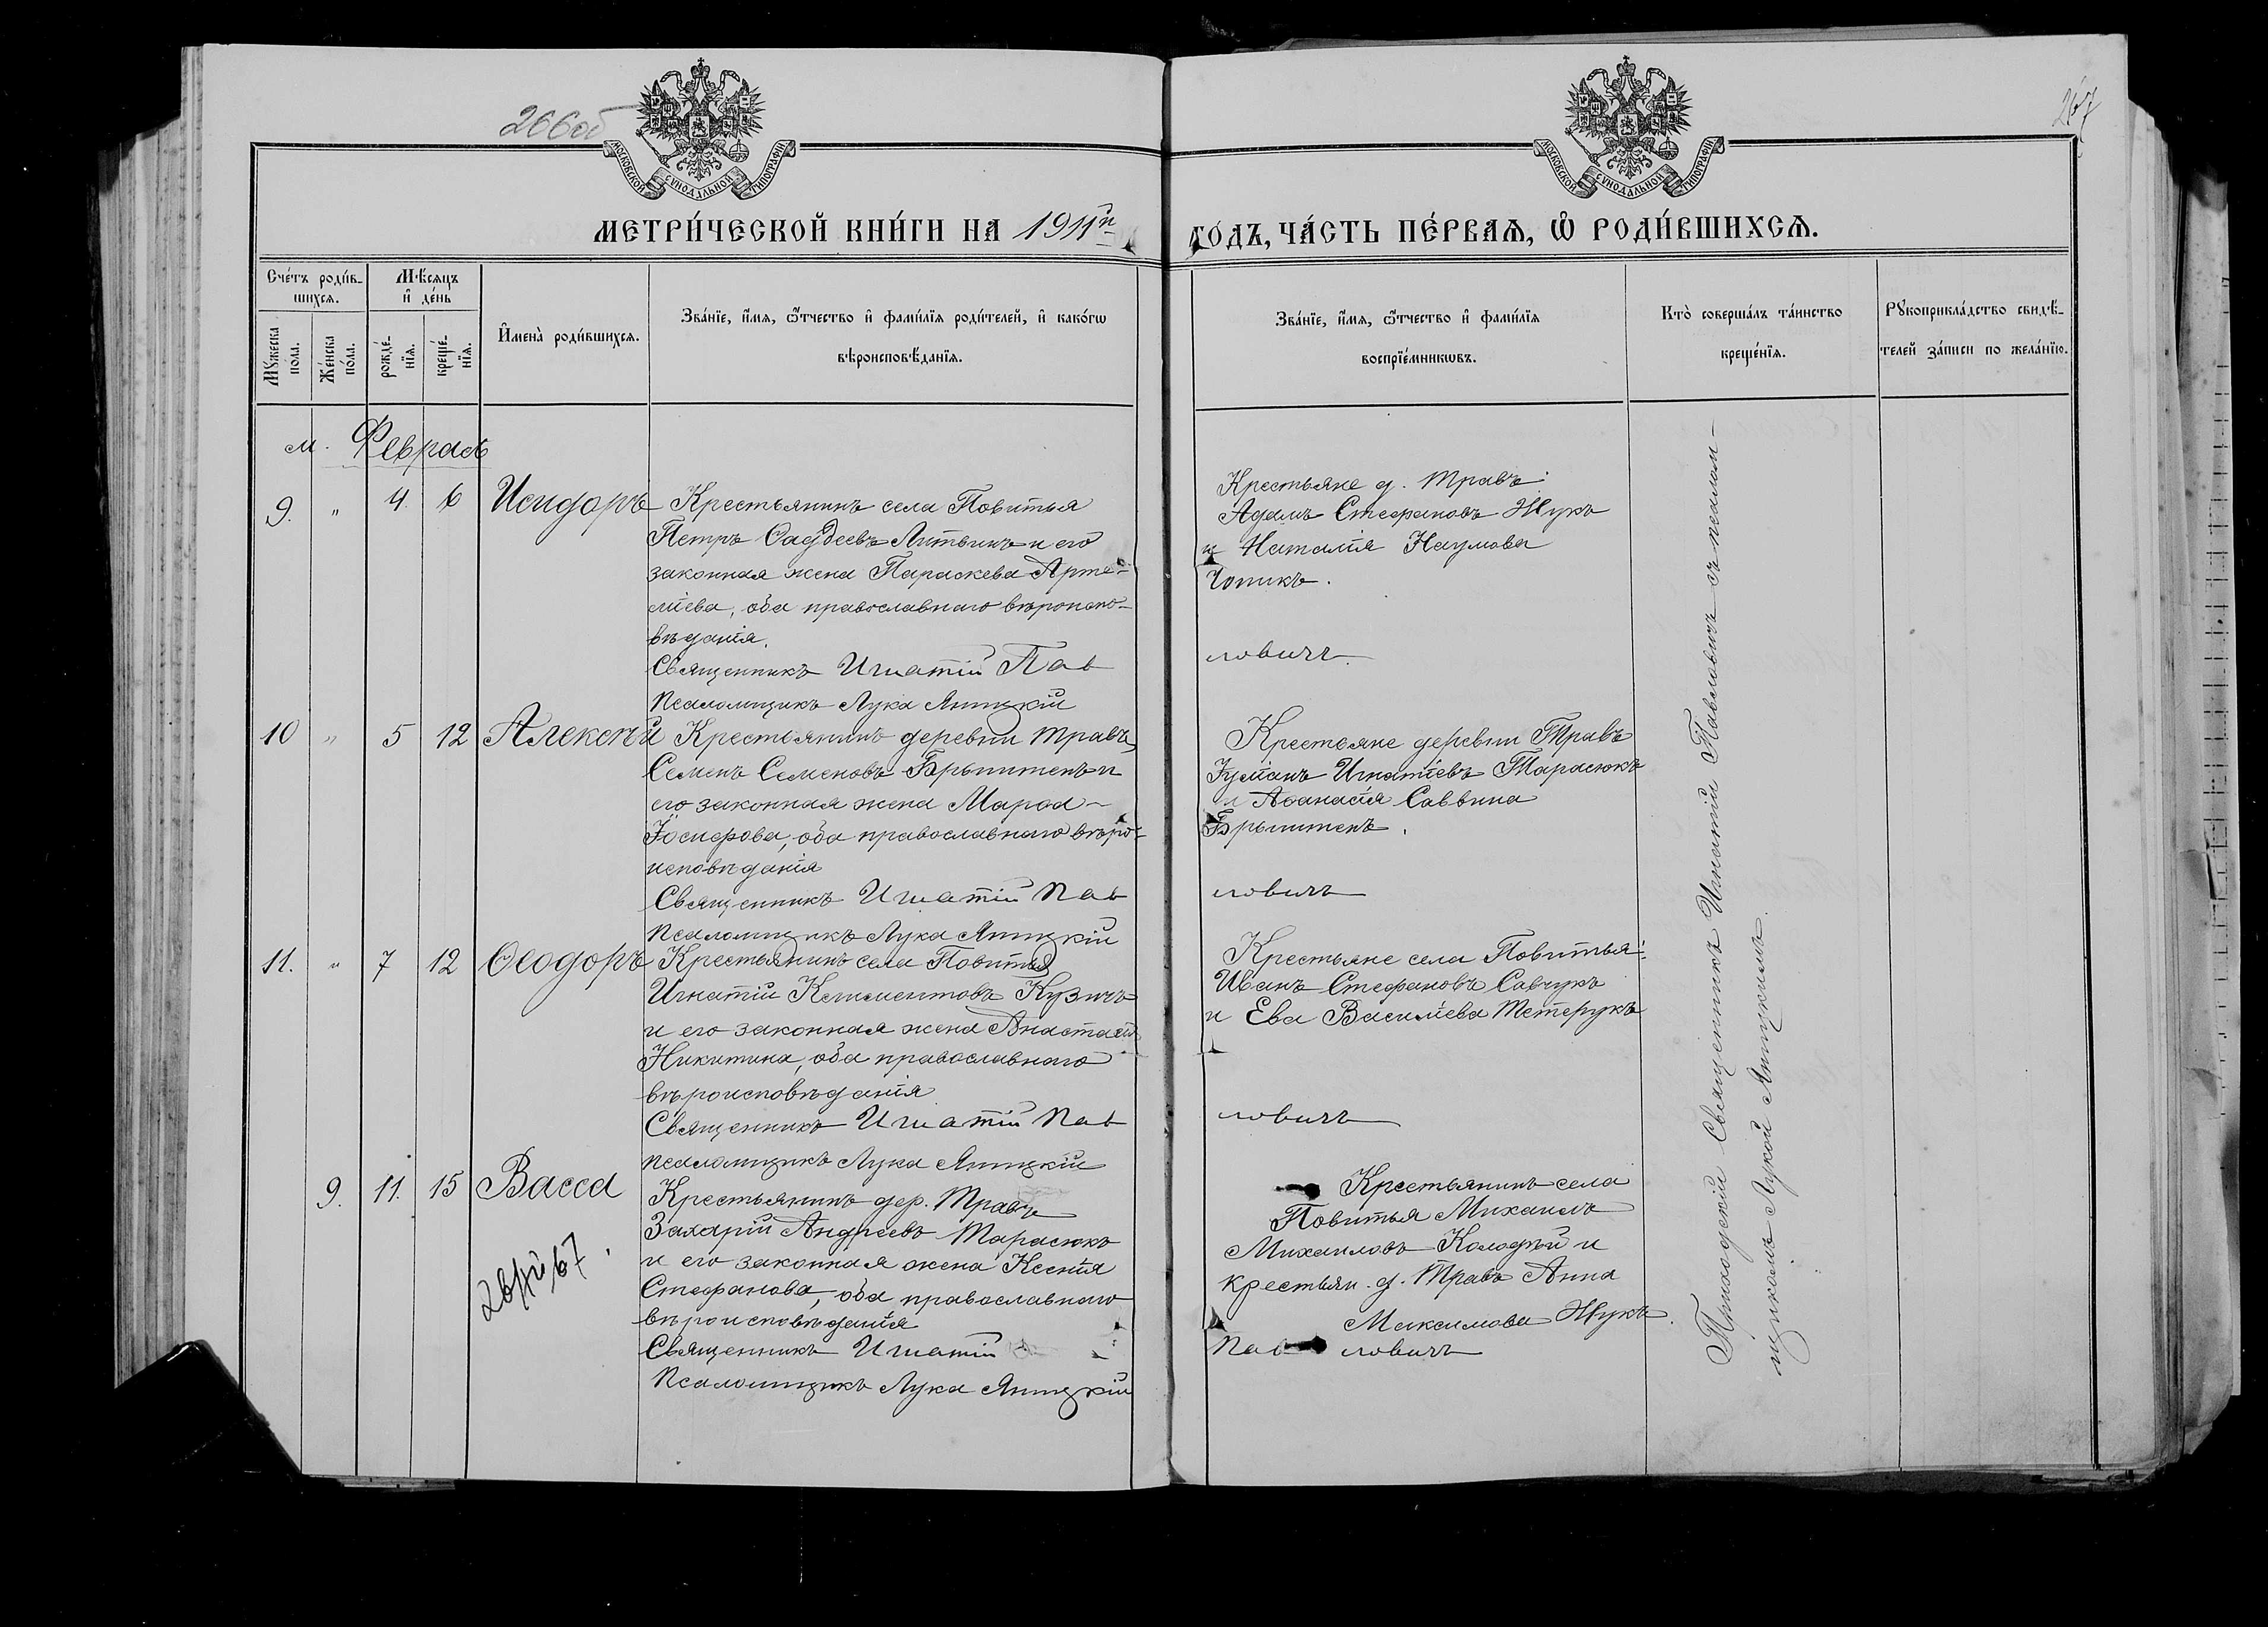 266об
267
МОСКОВСКОЙ СУНОДАЛЬНОЙ ТИПОГРАФІИ
МОСКОВСКОЙ СУНОДАЛЬНОЙ ТИПОГРАФІИ
МЕТРИ́ЧЕСКОЙ КНИ́ГИ НА 1911й
ГОДЪ, ЧА́СТЬ ПЕ́РВАѦ, Ѡ РОДИ́ВШИХСѦ.
Сче́тъ роди́в-
шихсѧ.
Мꙋ́жеска
по́ла.
Же́нска
по́ла.
Мѣ́сѧцъ
и҆ де́нь
рожде́-
нїѧ.
креще́-
нїѧ.
И҆мена̀ роди́вшихсѧ.
Зва́нїе, и҆́мѧ, ѻ҆́тчество и҆ фами́лїѧ роди́телей, и҆ како́гѡ
вѣроисповѣ́данїѧ.
Зва́нїе, и҆́мѧ, ѻ҆́тчество и҆ фами́лїѧ
воспрїе́мникѡвъ.
Кто̀ соверша́лъ та́инство
креще́нїѧ.
Рꙋкоприкла́дство свидѣ́-
телей за́писи по жела́нїю.
м. Февраль
9. " 4. 6 Исидоръ
Крестьянинъ села Повитья
Петръ Ѳаддеевъ Литвинъ и его
законная жена Параскева Арте-
мiева, оба православнаго вѣроиспо-
вѣданiя.
Священникъ Игнатій Пав
Псаломщикъ Лука Яницкій
Крестьяне д. Травъ:
Адамъ Стефановъ Жукъ
и Наталія Наумова
Чопикъ.
ловичъ.
10 " 5 12 Алексѣй
Крестьянинъ деревни Травъ
Семенъ Семеновъ и
его законная жена
Іосифова, оба православнаго вѣро-
исповѣданiя
Священникъ Игнатій Пав
Псаломщикъ Лука Яницкій
Крестьяне деревни Травъ
Игнатіевъ Тарасюкъ
и Аѳанасія Саввина
ловичъ
11. " 7 12 Ѳеодоръ
Крестьянинъ села Повитья
Игнатій Климентовъ Кузичъ
и его законная жена Анастасія
Никитина, оба православнаго
вѣроисповѣданія
Священникъ Игнатій Пав
Псаломщикъ Лука Яницкій
Крестьяне села Повитья:
Иванъ Стефановъ Савчукъ
и Ева Василіева Тетерукъ
ловичъ
9. 11. 15 Васса
Крестьянинъ дер. Травъ
Захарій Андреевъ Тарасюкъ
и его законная жена Ксенія
Стефанова, оба православнаго
вѣроисповѣданія
Священникъ Игнатій
Псаломщикъ Лука Яницкій
Крестьянинъ села
Повитья Михаилъ
Михаиловъ Колодѣй и
крестьян. д. Травъ Анна
Максимова Жукъ.
Пав ловичъ
Приходскій Священникъ Игнатій Павловичъ съ псалом-
щикомъ Лукой Яницкимъ.